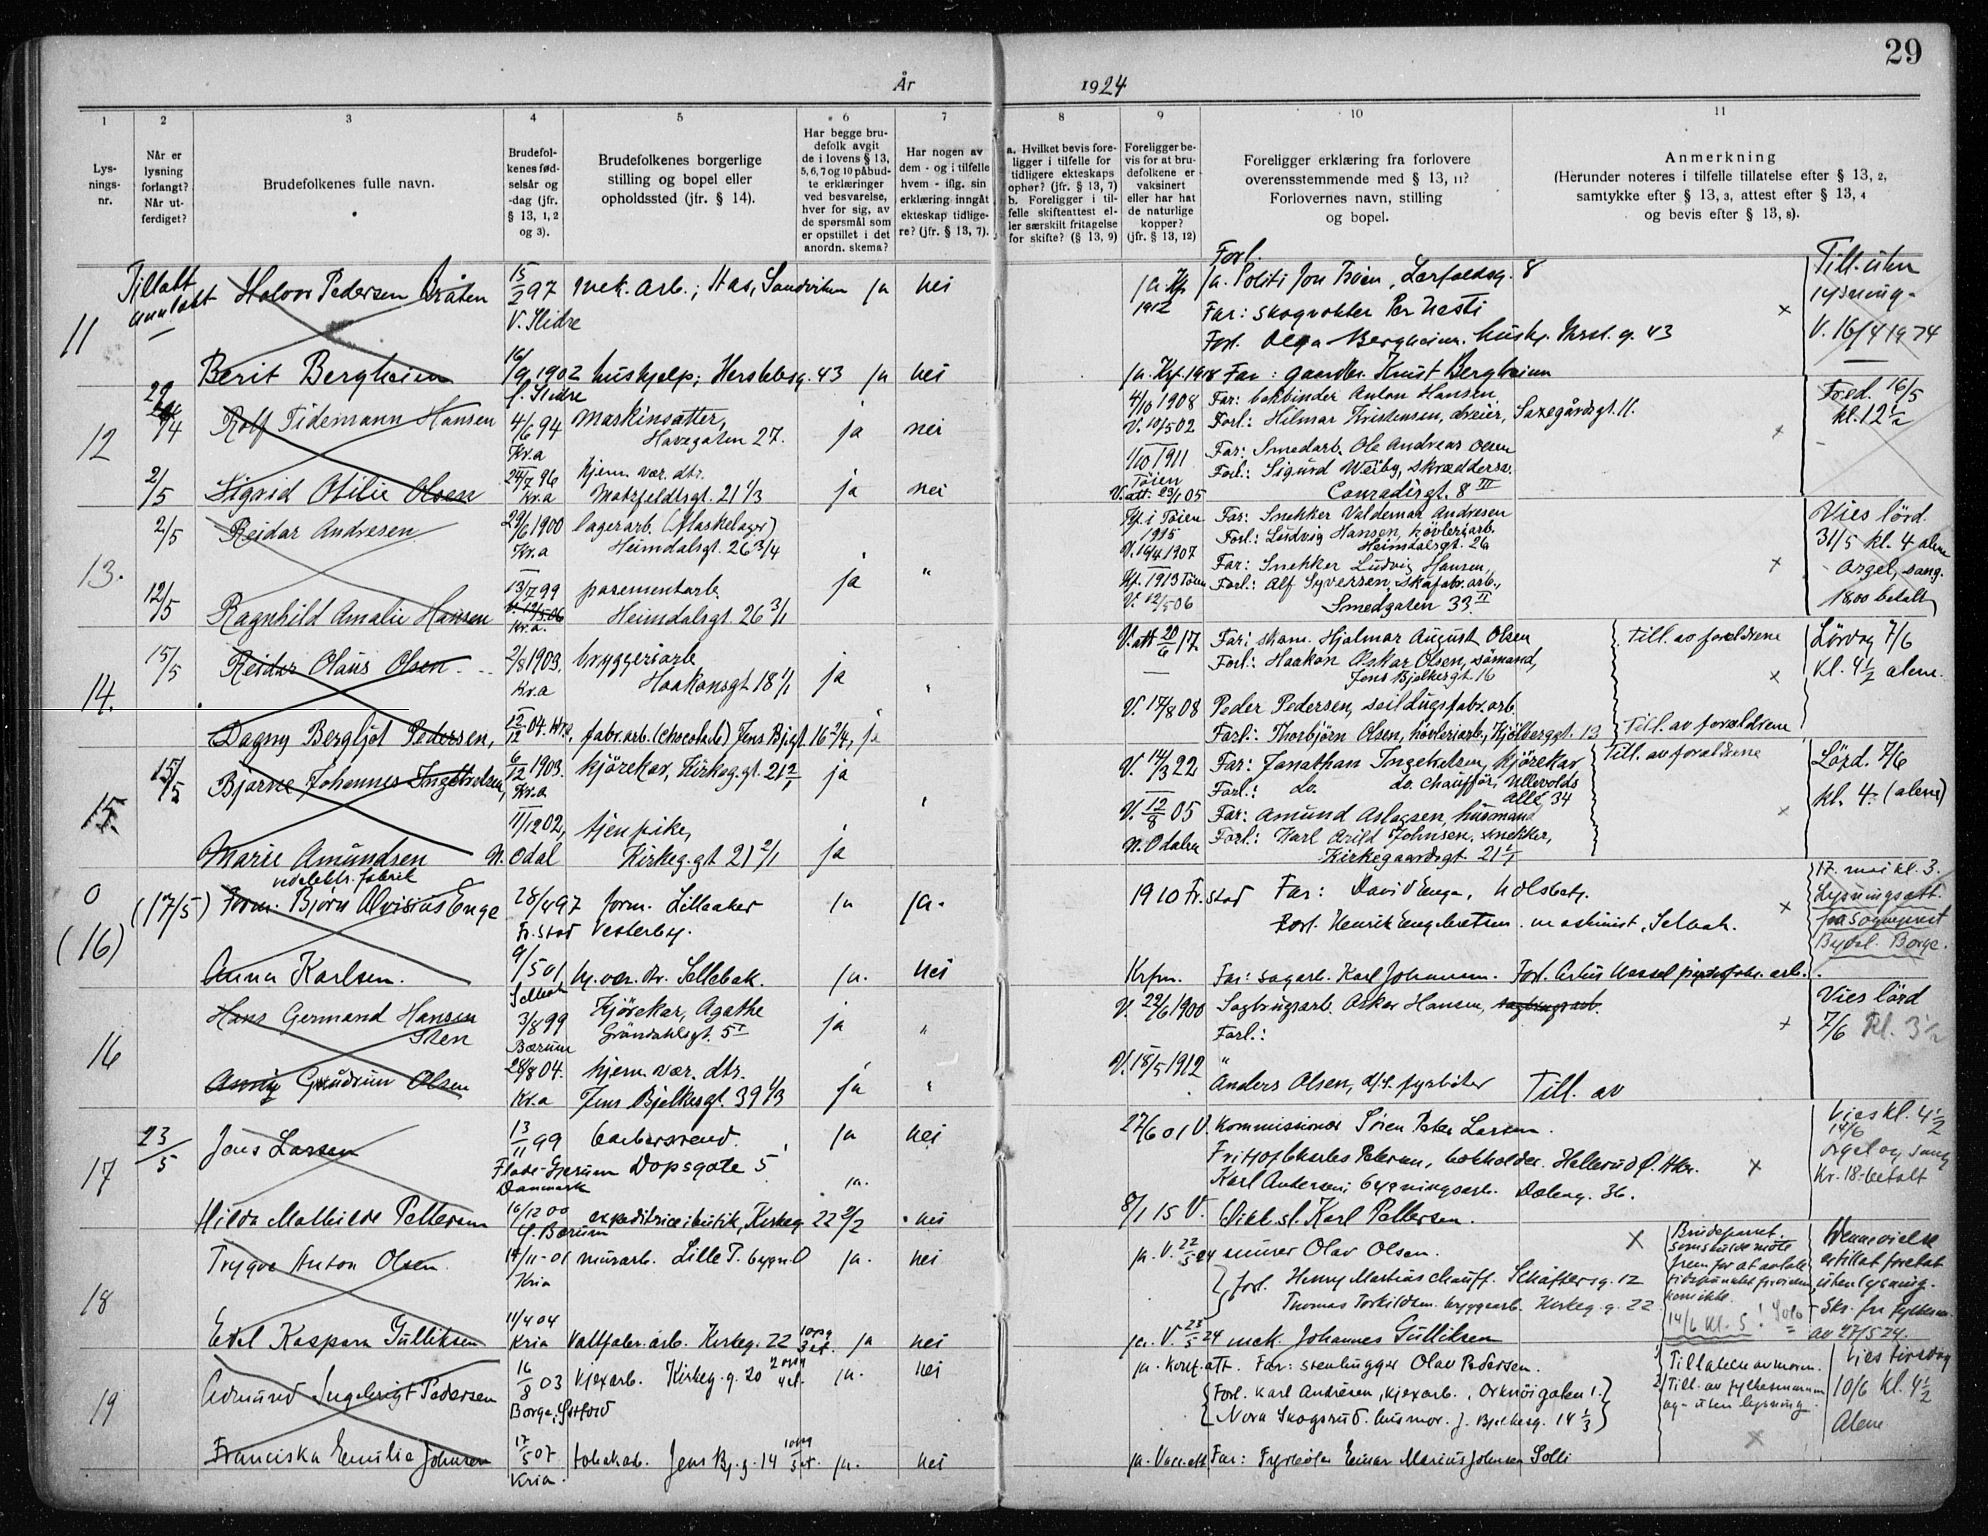 29
År 1924
1
2
3
4
5
6
7
8
9
10
11
Lys-
nings-
nr.
Når er
lysning
forlangt?
Når ut-
ferdiget?
Brudefolkenes fulle navn.
Brudefol-
kenes fød-
selsår og
-dag (jfr.
§ 13, 1, 2
og 3).
Brudefolkenes borgerlige
stilling og bopel eller
opholdssted (jfr. § 14).
Har begge bru-
defolk avgit
de i lovens § 13,
5, 6, 7 og 10 påbud-
te erklæringer
ved besvarelse,
hver for sig, av
de spørsmål som
er opstillet i det
anordn. skema?
Har nogen av
dem - og i tilfelle
hvem - iflg. sin
erklæring inngåt
ekteskap tidlige-
re? (jfr. § 13, 7).
a. Hvilket bevis fore-
ligger i tilfelle for
tidligere ekteskaps
ophør? (jfr. § 13, 7)
b. Foreligger i til-
felle skifteattest el-
ler særskilt fritagelse
for skifte? (§ 13, 9)
Foreligger be-
vis for at bru-
defolkene er
vaksinert
eller har hat
de naturlige
kopper?
(jfr. § 13, 12)
Foreligger erklæring fra forlovere
overensstemmende med § 13, 11?
Forlovernes navn, stilling
og bopel.
Anmerkning
(Herunder noteres i tilfelle tillatelse efter § 13, 2,
samtykke efter § 13, 3, attest efter § 13, 4
og bevis efter § 13, 8).
11
Halvor Pedersen Bråten
15/2 97
V. Slidre
mek. arb.; Has, Sandviken ja nei
1912
Forl.
ja. Politi Jon Broen, 8
Far: skogvokter Per Nesti
Forl. Olga Bergheim. hushj. 43
Till. uten
lysning.
V. 16/4 1924
Berit Bergheim
16/9 1902
hushjelp; Herslebsg. 43 ja nei
Far: gaardbr. Knut Bergheim
12
29/4
Rolf Tidemann Hansen
4/6 94
Kr.a
Maskinsätter,
Havegaten 27. ja nei
4/6 1908
V. 10/5 02
Far: bokbinder Anton Hansen
Forl: Hilmar Kristensen, dreier, Saxegårdsgt. 11.
Fred. 16/5
kl. 12 1/2
2/5
Sigrid Otilie Olsen
24/7 96
Kr.a
hjem. vær. dtr.
Motzfeldtsgt. 21 1/3 ja nei
1/10 1911
Tøien
V. att: 23/1 05
Far: Smedarb. Ole Andreas Olsen
Forl: Sigurd Weiby, skræddersv.
Conradisgt. 8 III
13.
2/5
Reidar Andresen
29/6 1900
Kr.a
lagerarb. (Maskelager)
Heimdalsgt. 26 3/4
Kf. i Töien
1915
V. 19/4 1907
Far: Snekker Valdemar Andresen
Forl: Ludvig Hansen, hövleriarb.
Heimdalsgt. 26
Vies lörd.
31/5 kl. 4 alene
- orgel, sang.
18,00 betalt
12/5
Ragnhild Amalie Hansen
13/7 99
Kr.a.
pasementarb.
Heimdalsgt. 26 3/1 ja "
Kf. 1913 Töien
V. 12/5 06
Far: Snekker Ludvig Hansen,
Forl: Alf Syversen, skofabr. arb.,
Smedgaten 33 II
14.
15/5
Reidar Olaus Olsen
2/8 1903.
Kr.a
bryggeriarb.
Haakonsgt 18 1/1 ja
V. att 20/6 17
Far: skom. Hjalmar August Olsen
Forl: Haakon Oskar Olsen, sömand,
Jens Bjelkesgt. 16
Till. av foreldrene
Lördag 7/6
kl. 4 1/2 alene.
Dagny Bergljot Pedersen,
12/12 04.
fabr. arb. (chocolade) Jens Bj.gt. 16 2/4, ja
V. 17/8 08
Peder Pedersen, seildugsfabr. arb.
Forl: Thorbjörn Olsen, hövleriarb., Kjölberggt. 13
Till. av forældrene
15.
15/5
Bjarne Johannes Ingebretsen,
6/12 1903.
Kr.a
kjörekar, Kirkeg. gt. 21 2/1 ja
V. 14/3 22
Far: Jonathan Ingebretsen, kjörekar
Forl.: do. do. chauffør, Ullevolds
allé 34
Till. av foreldrene
Lörd. 7/6
kl. 4. (alene)
Marie Amundsen
11/12 02,
N. Odal
tjen. pike,
Kirkeg. gt 21 2/1 ja
V. 12/8 05
N. Odalen
Far: Amund Aslagsen, husmand
Forl: Karl Arild Johnsen, snekker,
Kirkegaardsgt. 21 1/1
0
(16)
(17/5)
Form. Bjørn Alvisius Enge
28/4 97
Fr. stad
form. Lilleaker
Vesterby. ja ja.
1910 Fr. stad
Far: David Enge, Holsbety.
Forl. Henrik Engebretsen. maskinist, Selbak.
17. mai kl. 3.
Lysningsatt.
fra Sogneprest
Bydal. Borge.
Anna Karlsen.
9/5 01
Selbak
hj. vær. dtr. Sellebak. ja. nei
Krfm.
Far: sagarb. Karl Johansen.
16
Hans Germand Hansen
Sten
3/8 99
Bærum
Kjörekar, Agathe
Gröndahlsgt. 5 I ja "
V. 22/6 1900
Sagbrugsarb. Oskar Hansen,
Forl.:
Vies lörd
7/6 kl. 3 1/2
Anny Gudrun Olsen
28/8 04.
Kr.a
hjem. vær. dtr.
Jens Bjelkesgt. 39 1/3 ja "
V. 18/5 1912
"
Anders Olsen, fyrböter
Till. av
17
23/5
Jens Larsen
13/11 99
Danmark
barbersvend.
Dopsgate 5 ja nei
27/6 01 V.
Kommissionær Sören Peter Larsen.
Fritjof Charles Petersen, bokholder.
Karl Andersen, bygningsarb. Daleng. 36.
Vies kl. 4 1/2
14/6
orgel og sang
Kr. 18- betalt
Hilda Mathilde Pettersen
16/12 00
Bærum
expeditrice i butik, Kirkeg. 22 2/2 nei
8/1 15 V.
Karl Pettersen.
18
Trygve Anton Olsen.
Kria
murarb. Lille T. ja. nei
ja. V. 22/5 24
murer Olav Olsen.
forl. Henry Martias chauff. Schäftersg. 12
Thomas Torkildsen. bryggearb. Kirkeg. g. 22
Brudeparret.
som skulde møte
frem for at avtale
tidspunktet for vielsen,
kom ikke.
14/6 kl. 5!
Denne vielse
er tillat foretat
uten lysning.
- Skr. fra fylkesm.
av 27/5 24.
Edel Kaspara Gulliksen
11/4 04
Kria
Kirkeg. 22 ja nei
ja. V. 23/5 24
mek. Johannes Gulliksen
19
Edmund Ingebrigt Pedersen
16/8 03
Borge, Østfold
kjexarb. Kirkeg. g. 20 ja. nei
ja. konf. att.
Far: stenhugger Olav Pedersen.
Forl. Karl Andresen, kjexarb., Orknöigaten 1.
Nora Skogsrud. husmor. J. Bjelkesg. 14 1/3
1) Tillatelse av moren.
2) Till. av fylkesmannen
og - uten lysning.
Vies tirsdag
10/6 kl. 4 1/2
Alene
Franciska Emilie Johnsen
17/5 07
Kria.
Jens Bj. g. 14 ja. nei
ja. Vacc. att
Far: Fyrböter Einar Marius Johnsen Solli